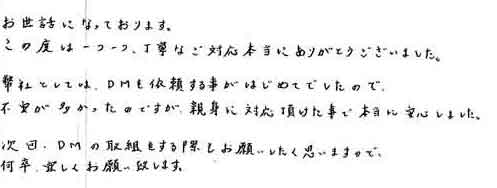 お世話になっております。
この度は一つ一つ、丁寧なご対応本当にありがとうございました。
弊社としては、DMを依頼する事がはじめてでしたので、
不安が多かったのですが、親身に対応頂けた事で本当に安心しました。
次回、DMの取組をする際もお願いしたく思いますので、
何卒、宜しくお願い致します。